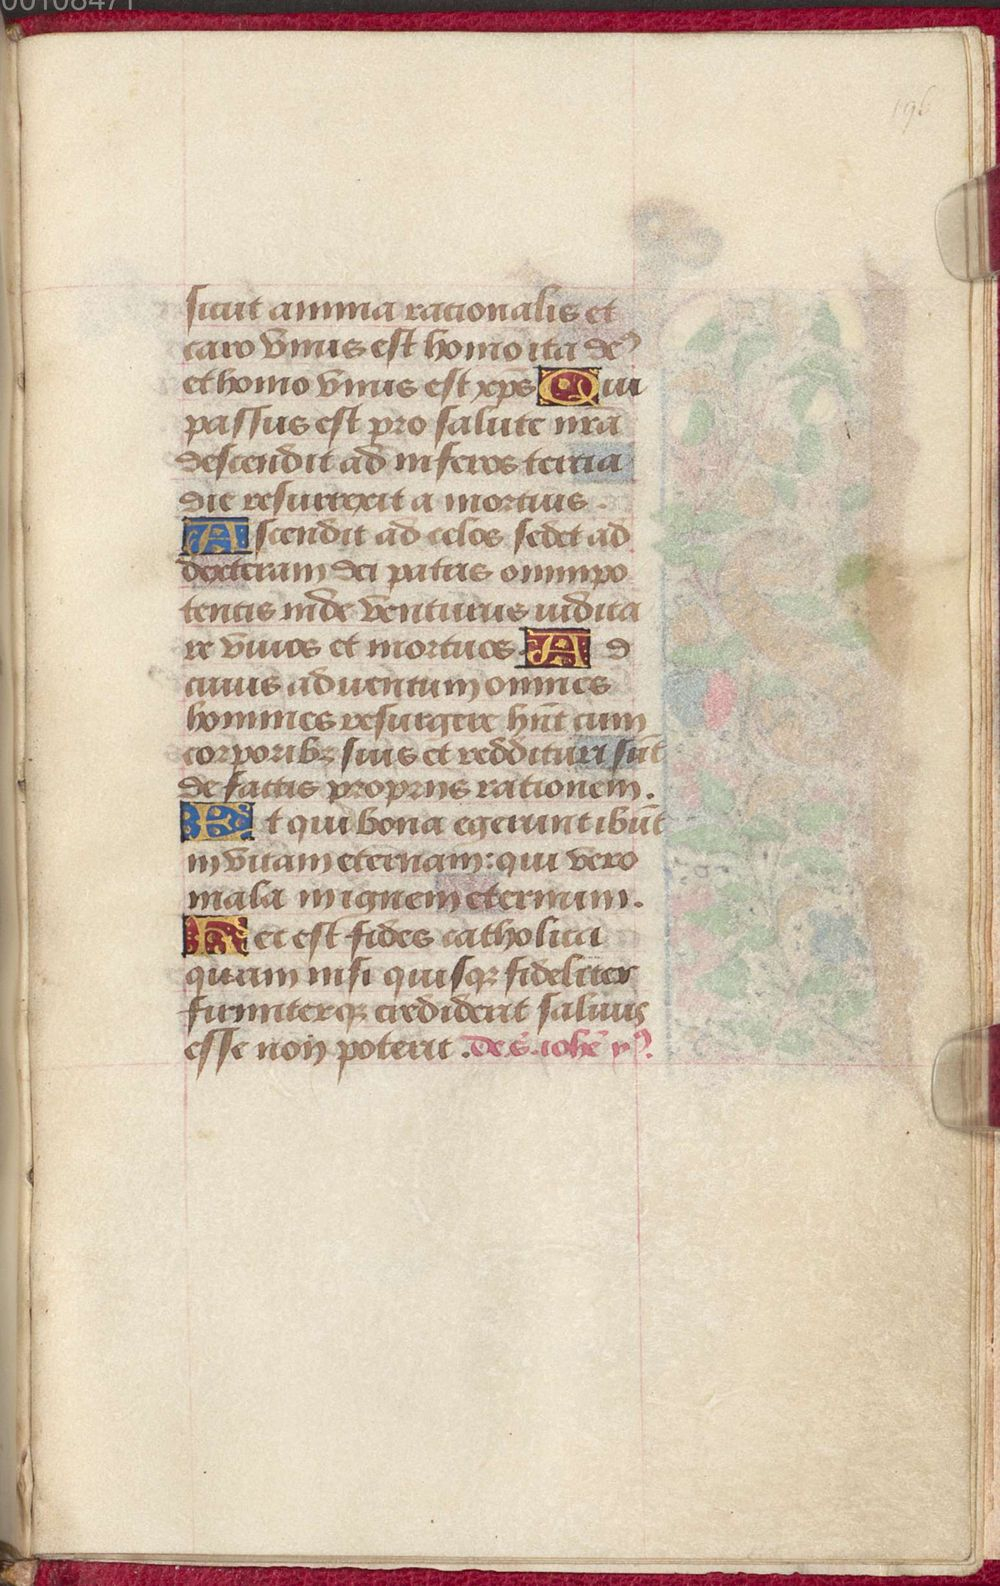 00108471
196
sicut anima racionalis et
caro vnus est homo ita de⁹
et homo vnus est xp̄s Qui
passus est pro salute nr̄a
descendit ad inferos tertia
die resurrexit a mortuis.
Ascendit ad celos sedet ad
dexteram dei patris omnipo
tentis inde venturus iudica
re viuos et mortuos. Ad
cuius aduentum omnes
homines resurgere hn̄t cum
corporibꝫ suis et reddituri sūt
de factis proprijs rationem.
Et qui bona egerunt ibūt
in vitam eternam: qui vero
mala in ignem eternum.
Hec est fides catholica
quam nisi quisqꝫ fideliter
firmiterqꝫ crediderit saluus
esse non poterit. De s̄. iohē